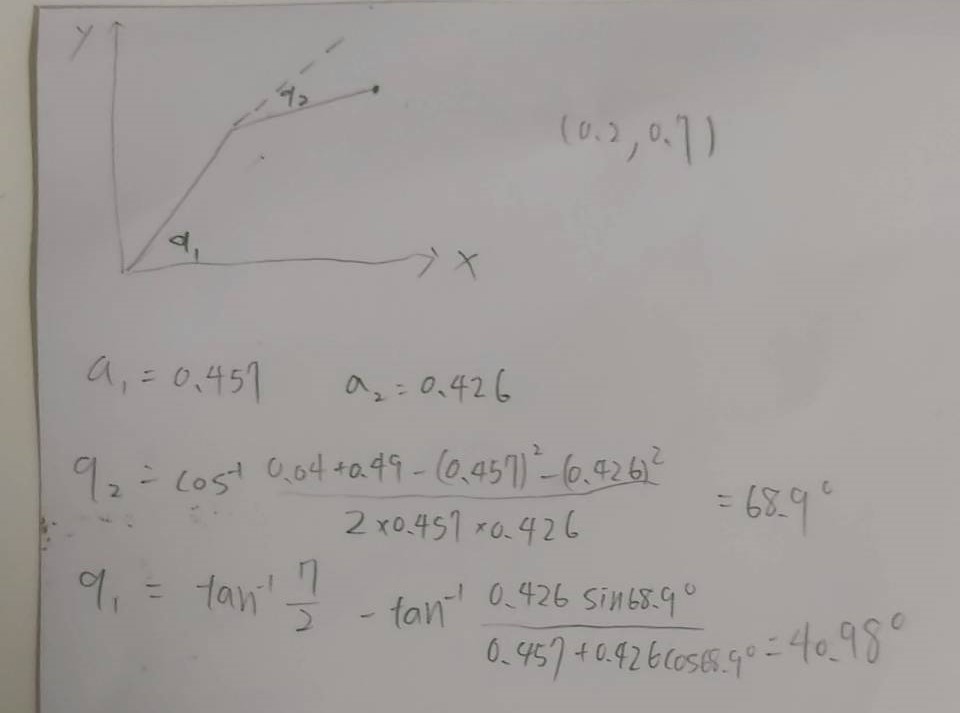 Y
q₂
(0.2, 0.7)
q₁
X
a₁ = 0.457 a₂ = 0.426
q₂ = cos⁻¹ (0.04 + 0.49 - (0.457)² - (0.426)²) / (2 × 0.457 × 0.426) = 68.9°
q₁ = tan⁻¹ 7/2 - tan⁻¹ (0.426 sin68.9°) / (0.457 + 0.426cos68.9°) = 40.98°